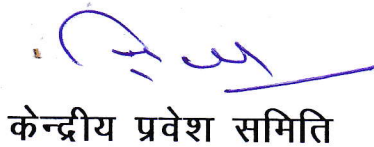 केन्द्रीय प्रवेश समिति